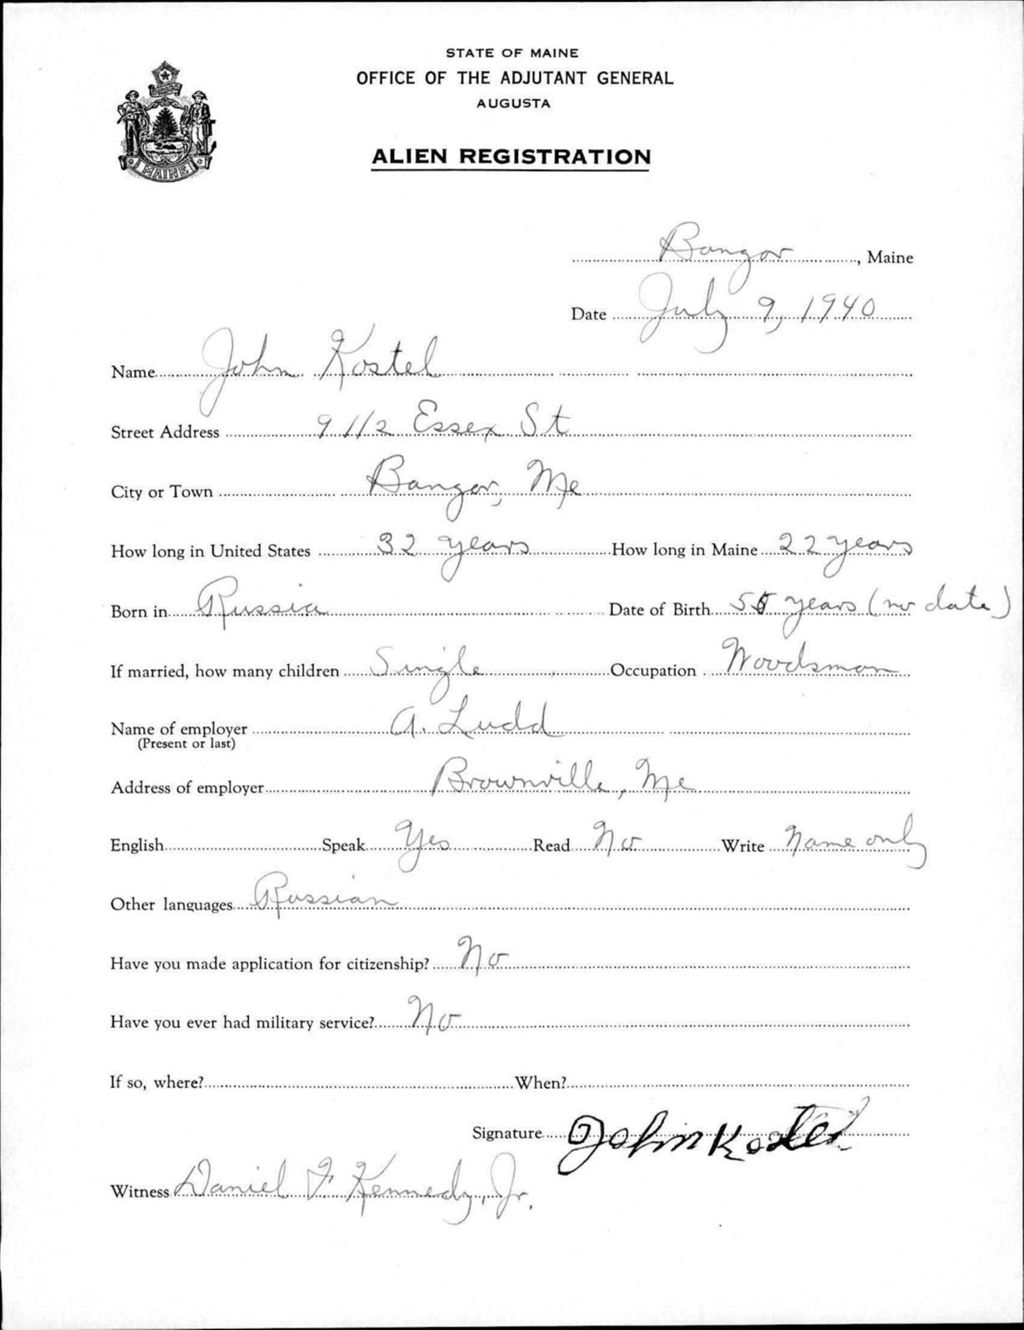 STATE OF MAINE
OFFICE OF THE ADJUTANT GENERAL
AUGUSTA
ALIEN REGISTRATION
MAINE
Bangor, Maine
Date July 9, 1940
Name John Kostel
Street Address 9 1/2 Essex St
City or Town Bangor, Me
How long in United States 32 years How long in Maine 22 years
Born in Russia Date of Birth 55 years (no date)
If married, how many children Single Occupation Woodsman
Name of employer A. Ludd
(Present or last)
Address of employer Brownville, Me
English Speak Yes Read No Write Name only
Other languages Russian
Have you made application for citizenship? No
Have you ever had military service? No
If so, where? When?
Signature John Kostel
Witness Daniel F Kennedy, Jr.